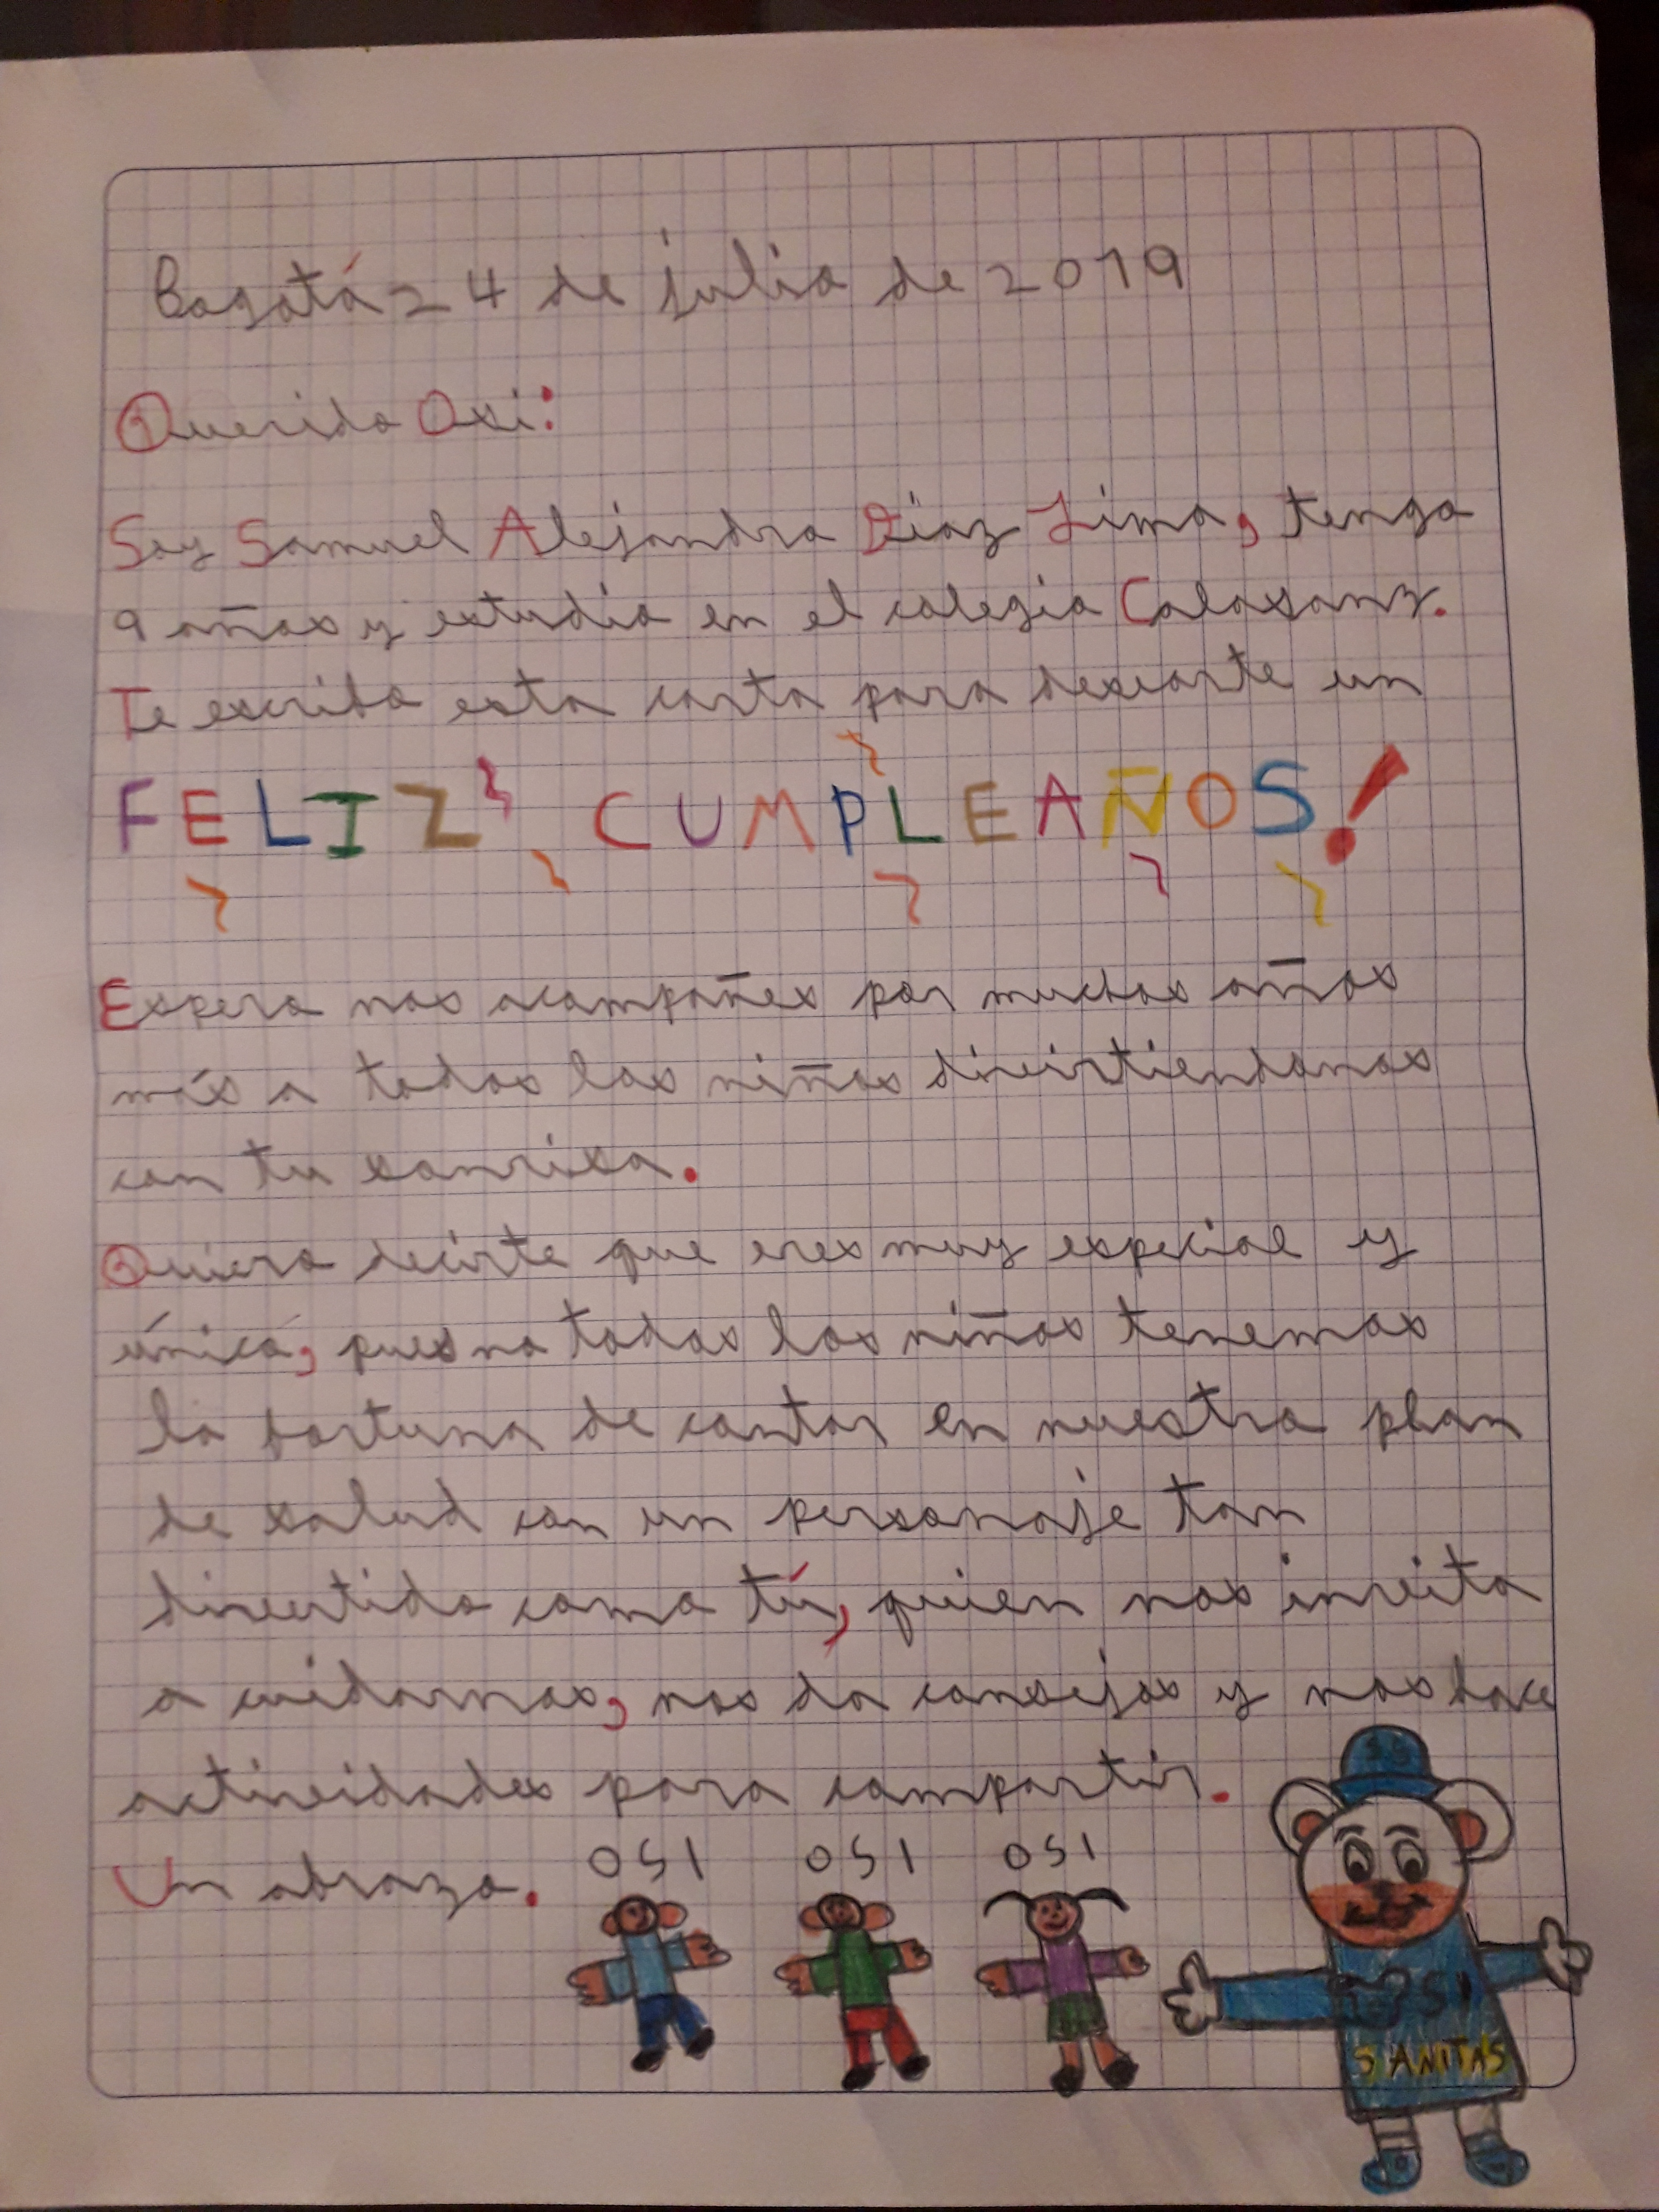 Bogotá 24 de julio de 2019
Querido Osi:
Soy Samuel Alejandro Díaz Lima, tengo
9 años y estudio en el colegio Calasanz.
Te escribo esta carta para desearte un
FELIZ CUMPLEAÑOS!
Espero nos acompañes por muchos años
más a todos los niños divirtiendonos
con tu sonrisa.
Quiero decirte que eres muy especial y
único, pues no todos los niños tenemos
la fortuna de contar en nuestro plan
de salud con un personaje tan
divertido como tú, quien nos invita
a cuidarnos, nos da consejos y nos hace
actividades para compartir.
Un abrazo.
OSI OSI OSI
OSI
SANITAS